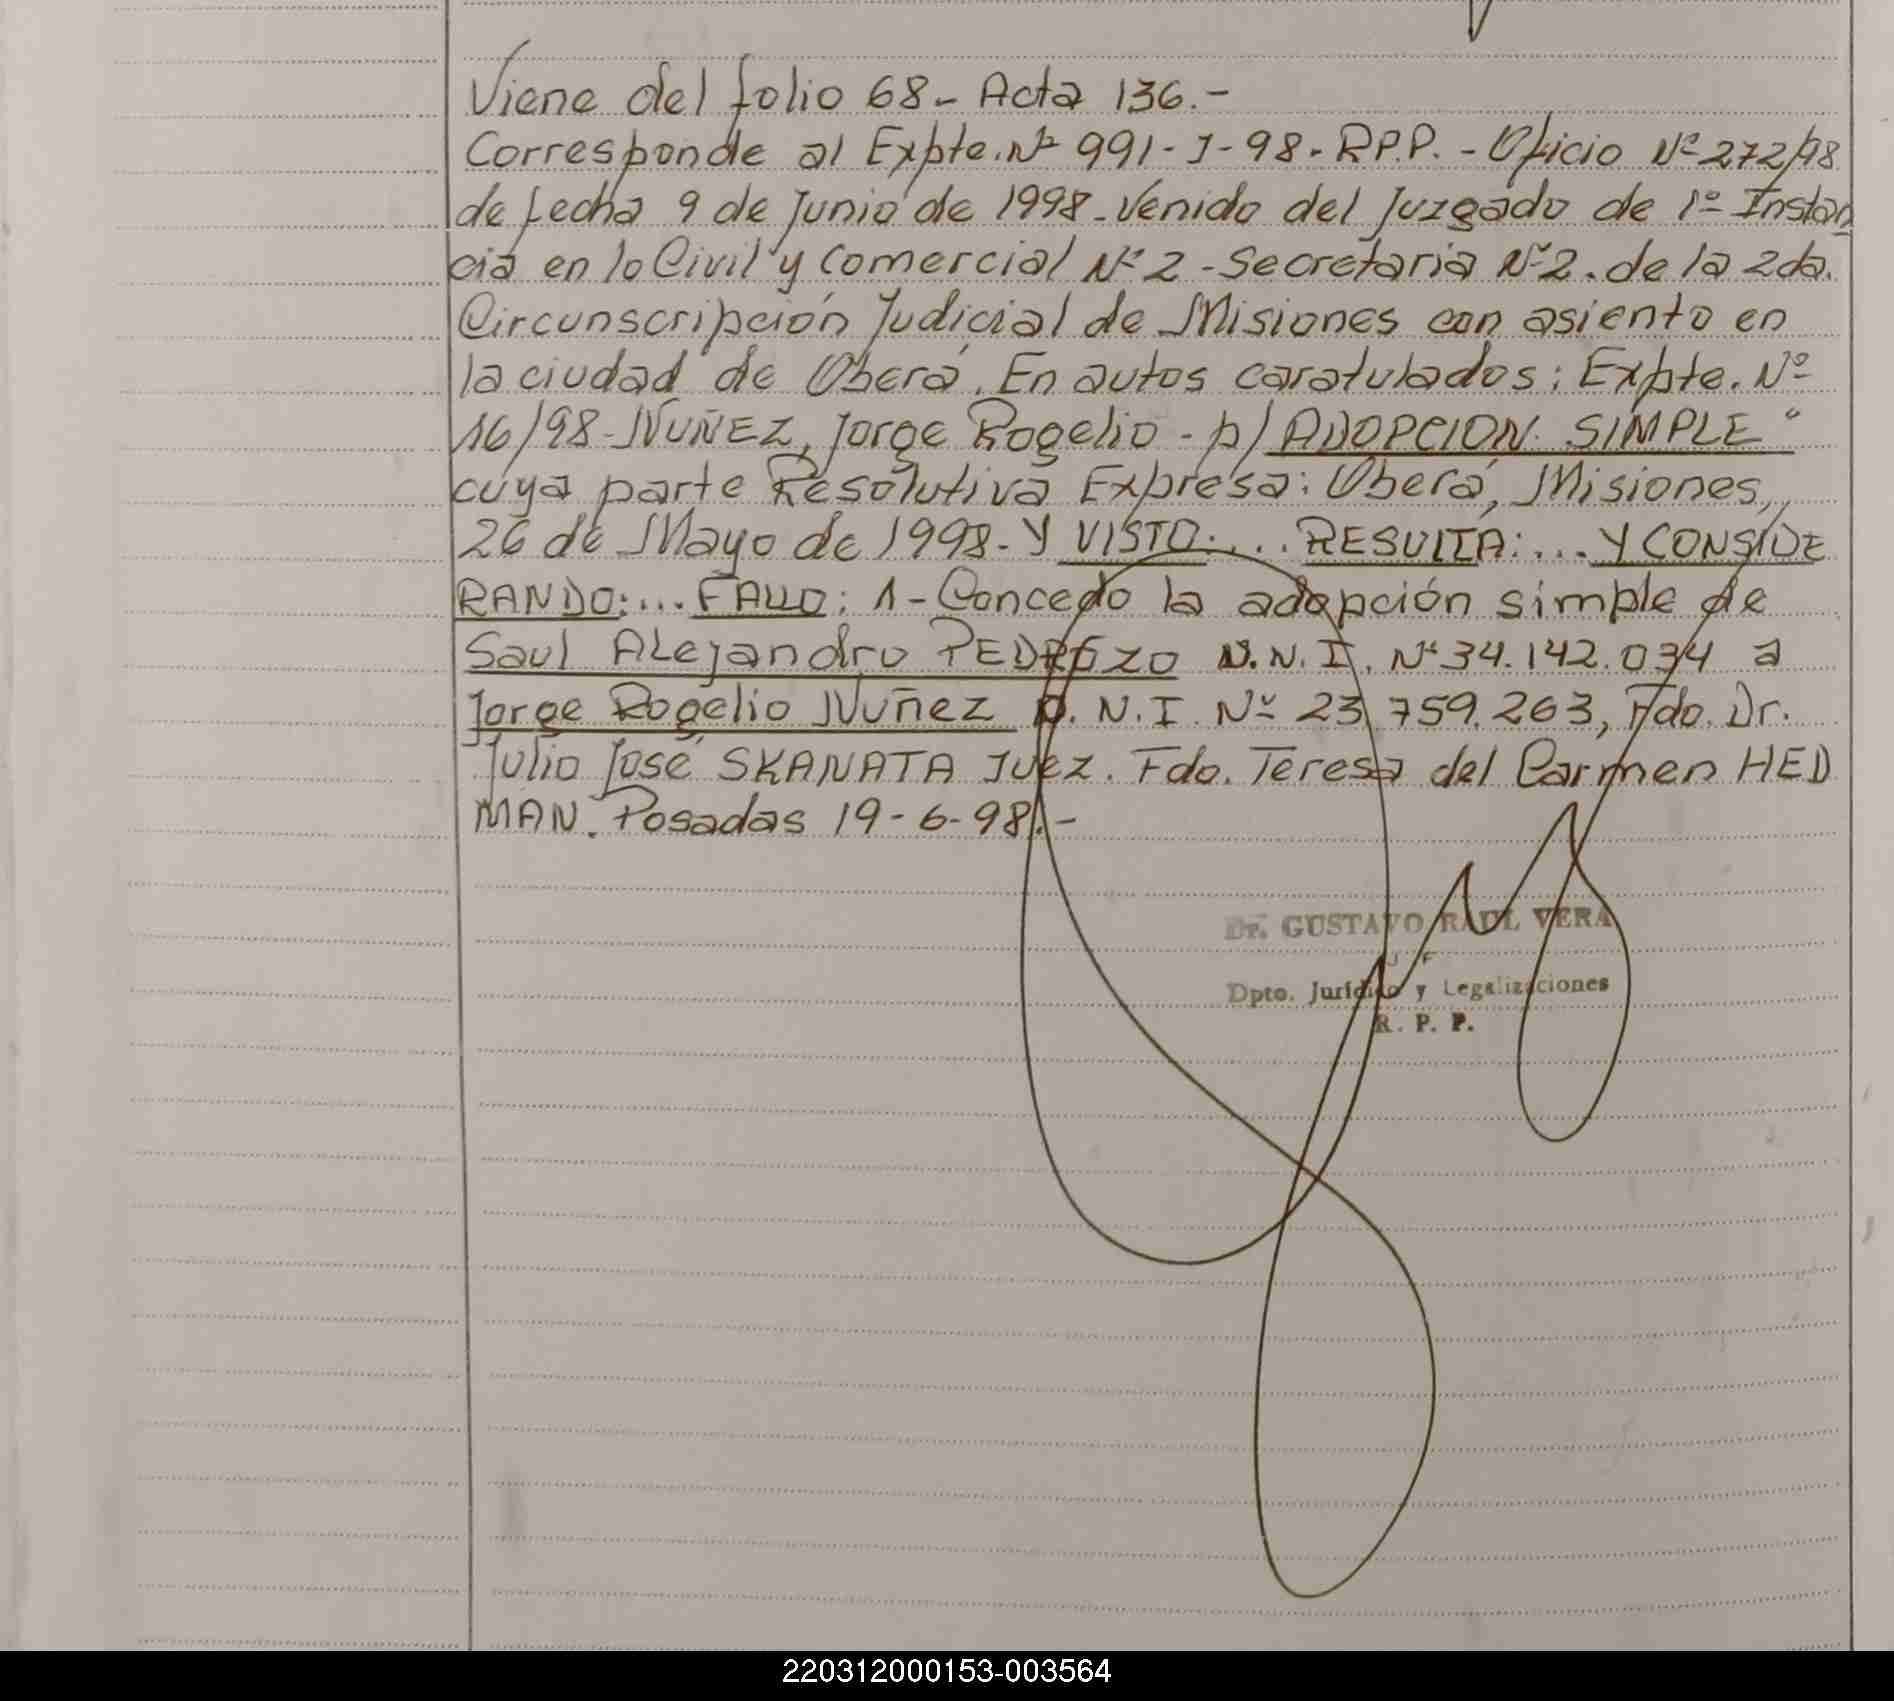 Viene del folio 68.- Acta 136.-
Corresponde al Expte. Nº 991-J-98-R.P.P. - Oficio Nº 272/98
de fecha 9 de Junio de 1998-Venido del Juzgado de 1º Instan
cia en lo Civil y Comercial Nº 2 - Secretaria Nº 2. de la 2da.
Circunscripción Judicial de Misiones con asiento en
la ciudad de Oberá. En autos caratulados: Expte. Nº
16/98-NUÑEZ, Jorge Rogelio - p/ ADOPCION SIMPLE"
cuya parte Resolutiva Expresa: Oberá, Misiones,
26 de Mayo de 1998- Y VISTO:... RESULTA:.... Y CONSIDE
RANDO:... FALLO: 1- Concedo la adopción simple de
Saul Alejandro PEDROZO D.N.I. Nº 34.142.034 a
Jorge Rogelio Nuñez D.N.I. Nº 23.759.263, Fdo. Dr.
Julio José SKANATA Juez. Fdo. Teresa del Carmen HED
MAN. Posadas 19-6-98.-
Dr. GUSTAVO RAUL VERA
Dpto. Jurídico y Legalizaciones
R. P. P.
220312000153-003564